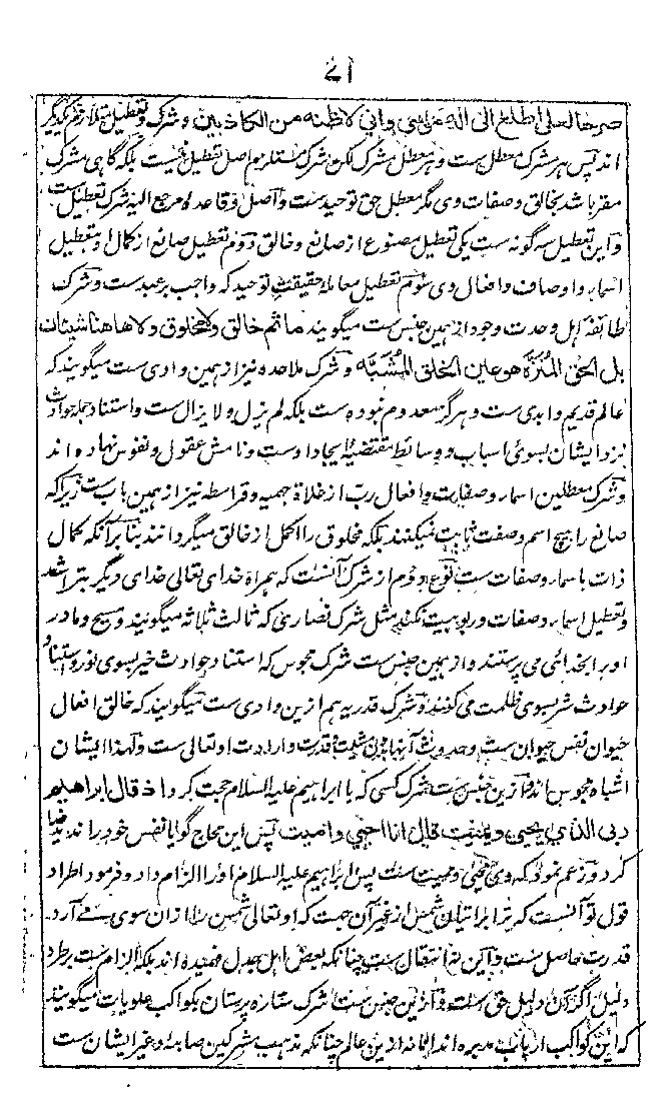 ۷۱
صرحا لعلی اطلع الی اله موسی وانی لاظنه من الکاذبین و شرک و تعطیل متلازم یکدیگر
اند پس هر مشرک معطل ست و هر معطل مشرک لکن شرک مستلزم اصل تعطیل نیست بلکه گاهی مشرک
مقر باشد بخالق و صفات وی مگر معطل حق توحید ست و اصل و قاعده مرجع الیه شرک تعطیل ست
و این تعطیل سه گونه ست یکی تعطیل مصنوع از صانع و خالق دوم تعطیل صانع از کمال او بتعطیل
اسماء و اوصاف و افعال وی سوم تعطیل معامله حقیقت توحید که واجب بر عبد ست و شرک
طائفه اهل وحدت وجود از همین جنس ست میگویند ما ثم خالق ولا مخلوق ولا هاهنا شیئان
بل الحق المنزه هو عین الخلق المشبه و شرک ملاحده نیز از همین وادی ست میگویند که
عالم قدیم و ابدی ست و هرگز معدوم نبوده ست بلکه لم یزل ولا یزال ست و استناد جمله حوادث
نزد ایشان بسوی اسباب و وسائط مقتضیه ایجاد اوست و نامش عقول و نفوس نهاده اند
و شرک معطلین اسماء و صفات و افعال رب از غلاة جهمیه و قرامطه نیز از همین باب ست زیراکه
صانع را هیچ اسم و صفت ثابت نمیکنند بلکه مخلوق را اکمل از خالق میگردانند بنا بر آنکه کمال
ذات باسماء و صفات ست نوع دوم از شرک آنست که همراه خدای تعالی خدای دیگر بتراشد
و تعطیل اسماء و صفات و ربوبیت نکند مثل شرک نصاری که ثالث ثلاثه میگویند و مسیح و مادر
او را بخدائی می پرستند و از همین جنس ست شرک مجوس که استناد حوادث خیر بسوی نور و استناد
حوادث شر بسوی ظلمت می کنند و شرک قدریه هم ازین وادی ست میگویند که خالق افعال
حیوان نفس حیوان ست و حدوث آنها بدون مشیت و قدرت و ارادت او تعالی ست و لهذا ایشان
اشباه مجوس اند و ازین جنس ست شرک کسی که با ابراهیم علیه السلام حجت کرد اذ قال ابراهیم
ربی الذی یحیی و یمیت قال انا احیی و امیت پس این محاج گویا نفس خود را ند
کرد و زعم نمود که وی محیی و ممیت ست پس ابراهیم علیه السلام او را الزام داد و فرمود اطراد
قول تو آنست که ترا بر اتیان شمس از غیر آن جهت که او تعالی شمس را ازان سوی می آرد
قدرت حاصل ست و این نه انتقال ست چنانکه بعض اهل جدل فهمیده اند بلکه الزام ست بر طرد
دلیل اگر آن دلیل حق ست و ازین جنس ست شرک ستاره پرستان بکواکب علویات میگویند
که این کواکب ارباب مدبره اند ازین عالم چنانکه مذهب مشرکین صابئه و غیر ایشان ست